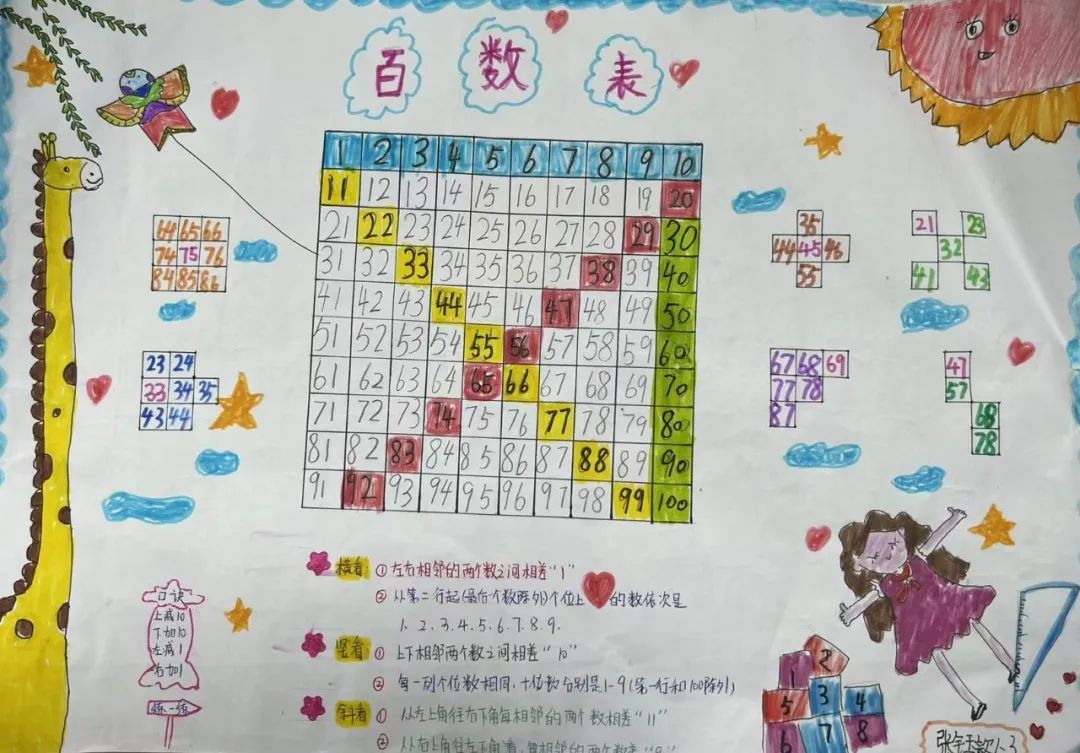 百 数 表
1 2 3 4 5 6 7 8 9 10
11 12 13 14 15 16 17 18 19 20
21 22 23 24 25 26 27 28 29 30
31 32 33 34 35 36 37 38 39 40
41 42 43 44 45 46 47 48 49 50
51 52 53 54 55 56 57 58 59 60
61 62 63 64 65 66 67 68 69 70
71 72 73 74 75 76 77 78 79 80
81 82 83 84 85 86 87 88 89 90
91 92 93 94 95 96 97 98 99 100
64 65 66
74 75 76
84 85 86
23 24
33 34 35
43 44
35
44 45 46
55
21 23
32
41 43
67 68 69
77 78
87
47
57
68
78
横看: ① 左右相邻的两个数之间相差“1”
② 从第二行起(最后个数除外)个位上的数依次是
1、2、3、4、5、6、7、8、9。
竖看: ① 上下相邻两个数之间相差“10”
② 每一列个位数相同,十位数分别是1-9(第一行和100除外)
斜看 ① 从左上角往右下角每相邻的两个数相差“11”
② 从右上角往左下角看,每相邻的两个数差“9”
口诀
上减10
下加10
左减1
右加1
练一练
2
1
5 3 4
6 7 8